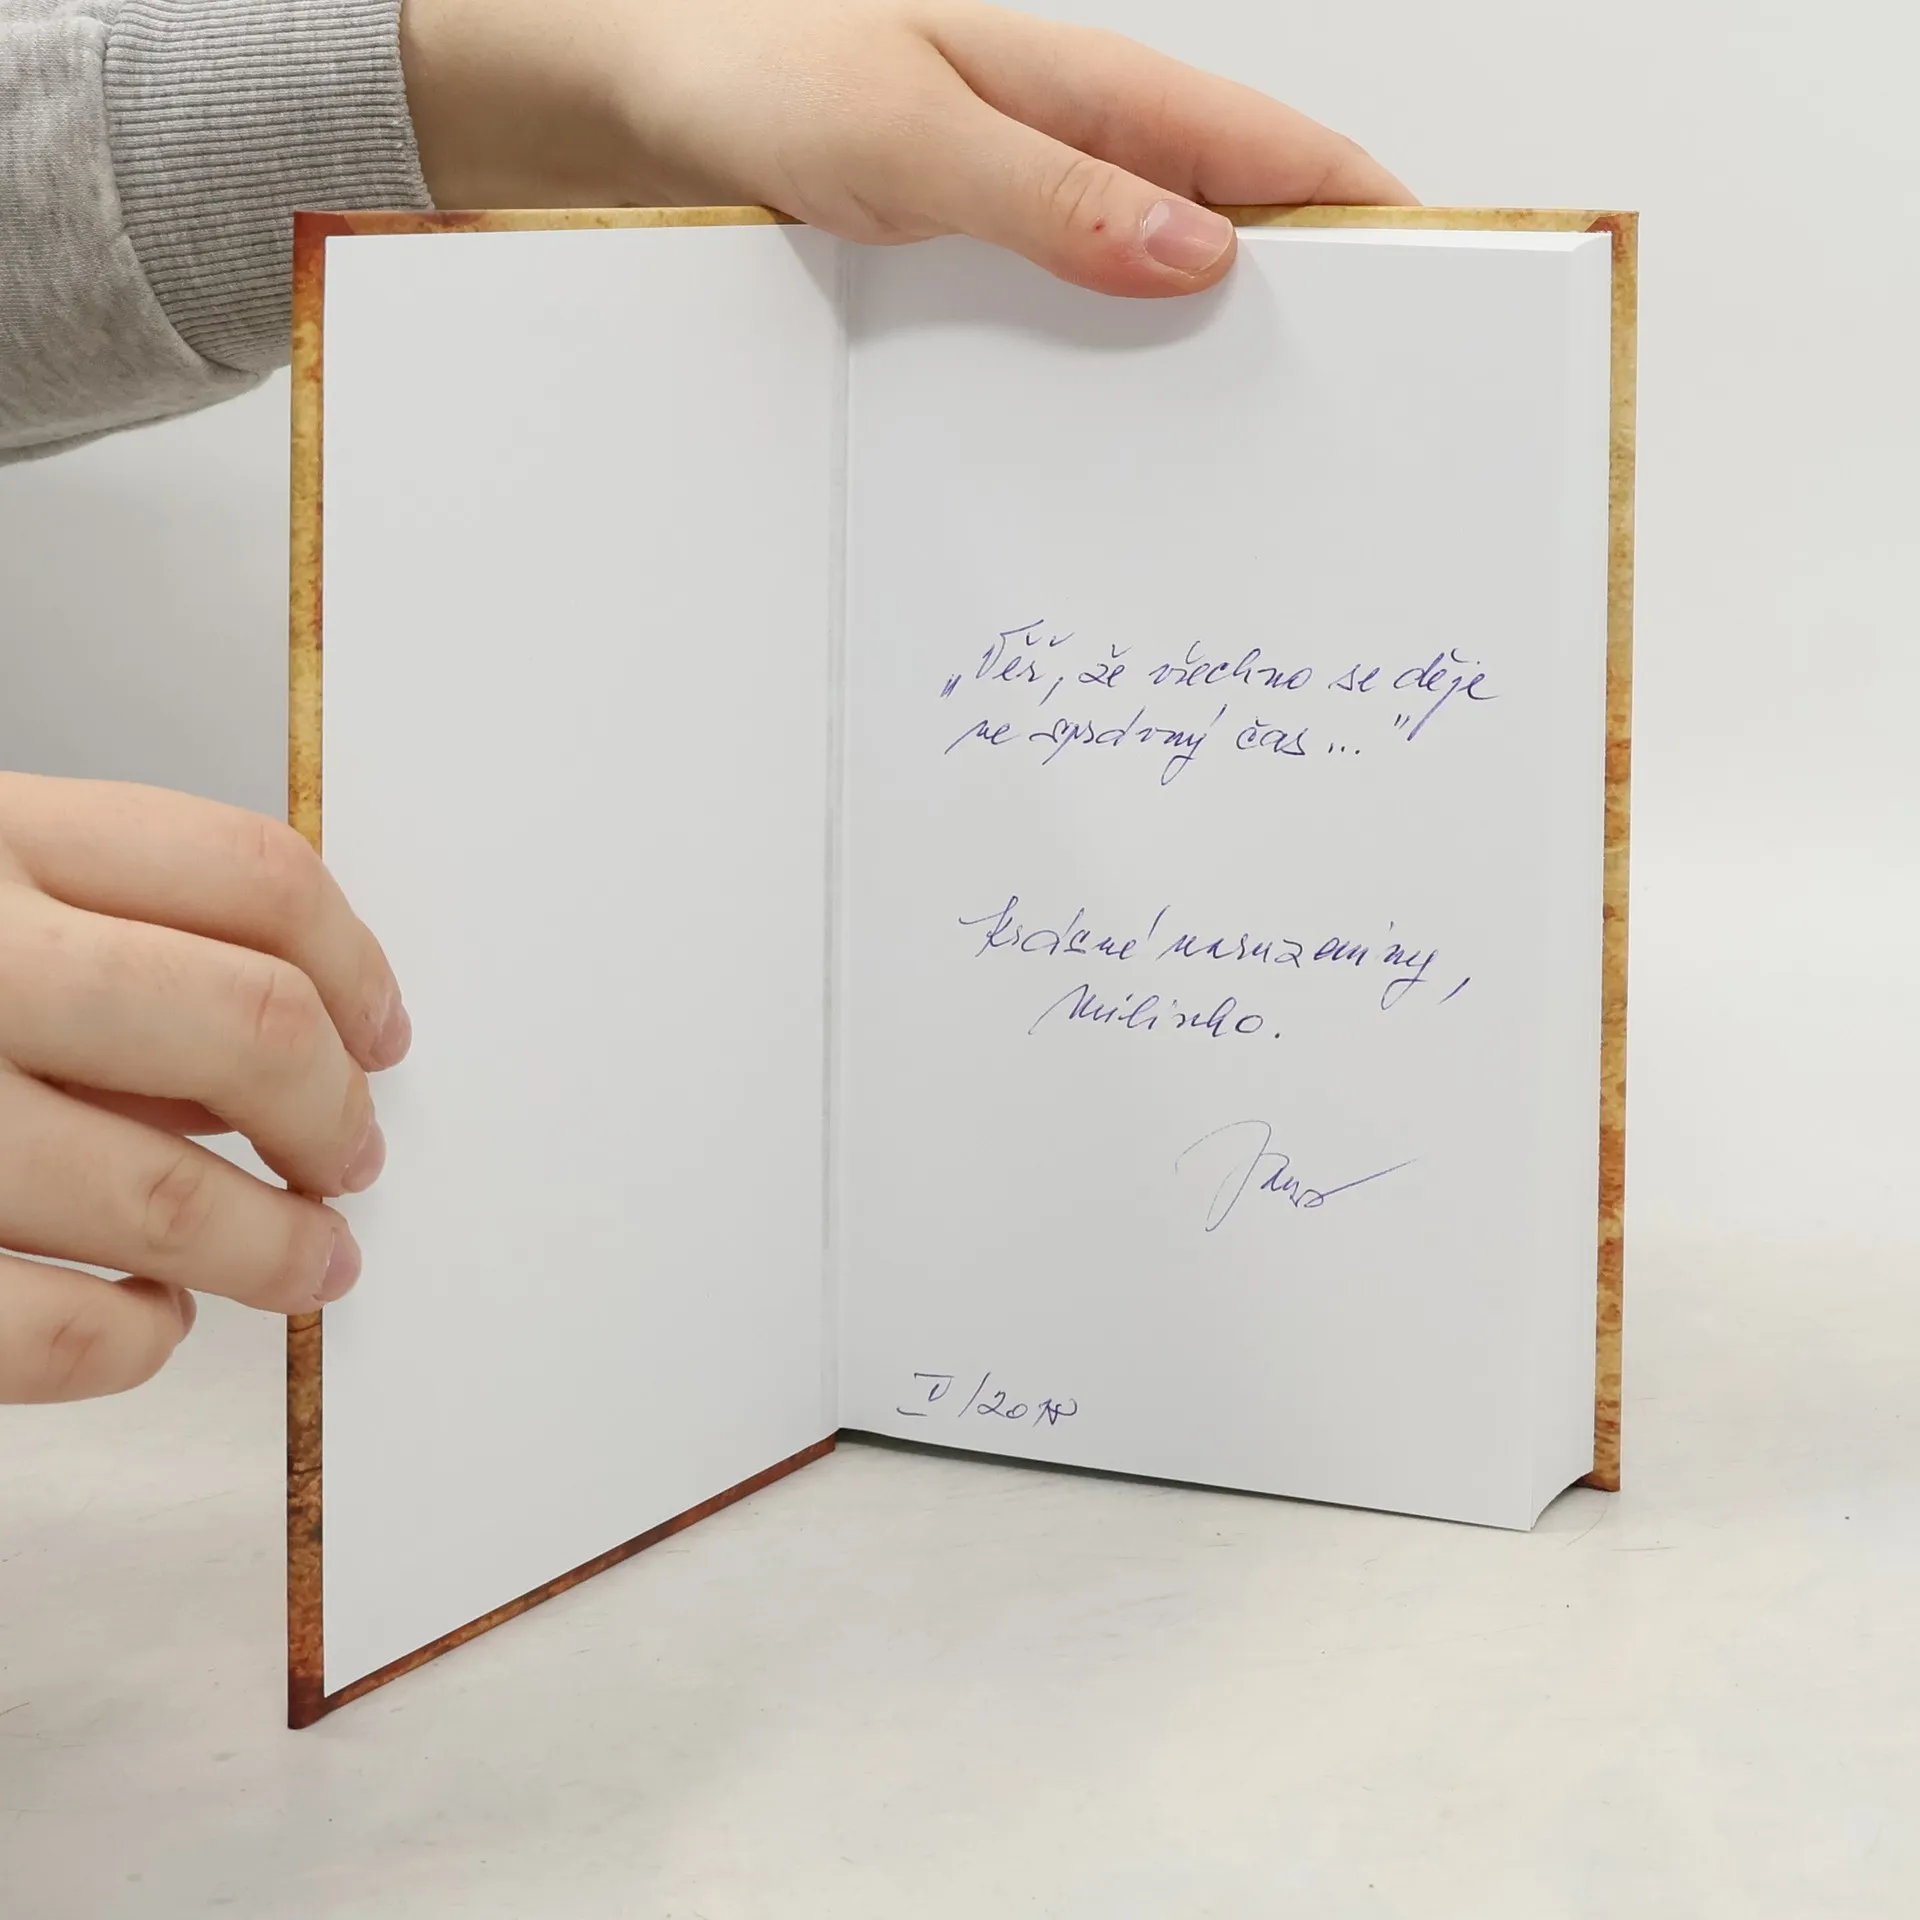 „Věř, že všechno se děje
ve správný čas..."
Krásné narozeniny,
Milinko.
Jana
V/2018